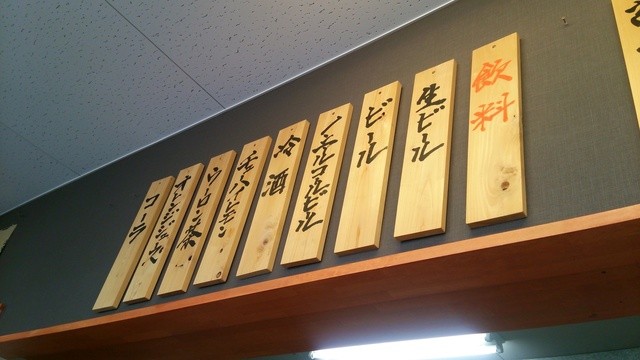 飲料
生ビール
ビール
ノンアルコールビール
冷酒
ウーロン茶
オレンジジュース
コーラ